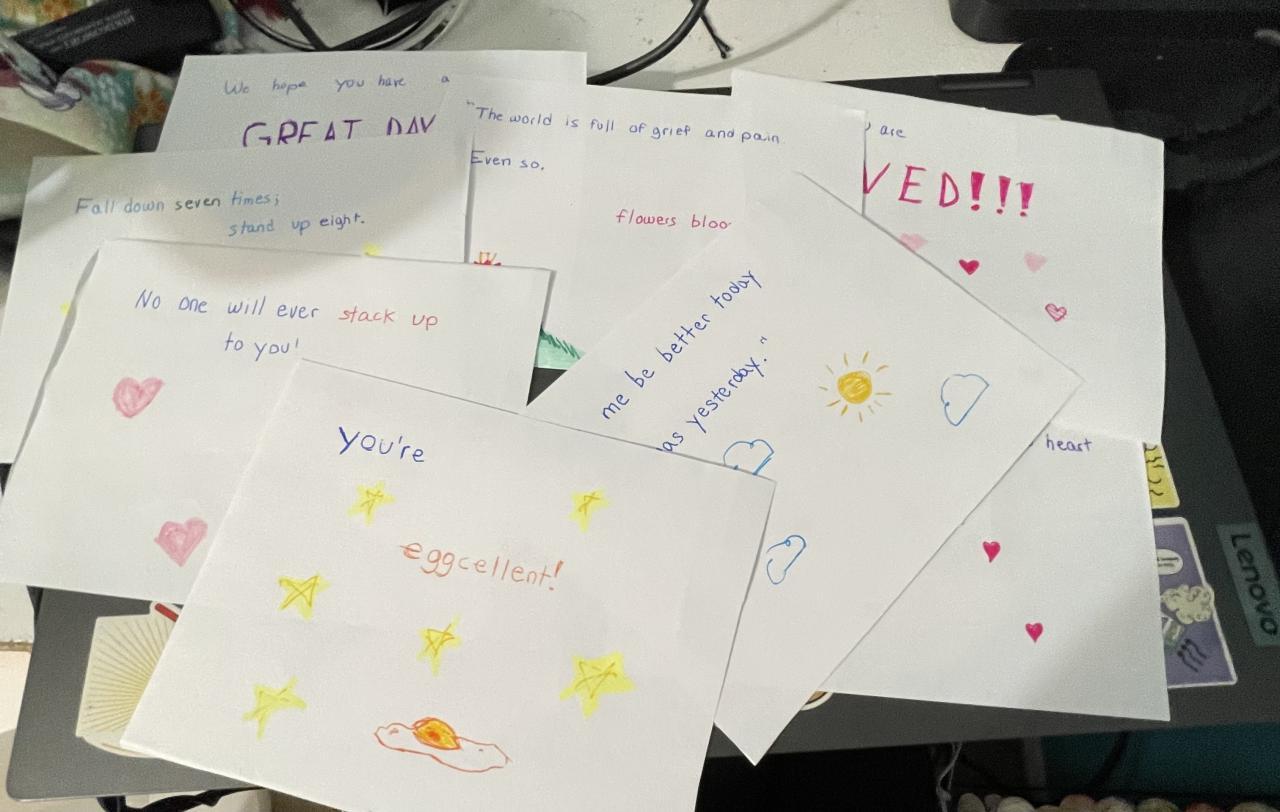 We hope you have a
GREAT DAY
"The world is full of grief and pain
Even so,
flowers
are
VED!!!
Fall down seven times;
stand up eight.
No one will ever stack up
to you!
me be better today
as yesterday."
heart
you're
eggcellent!
Lenovo